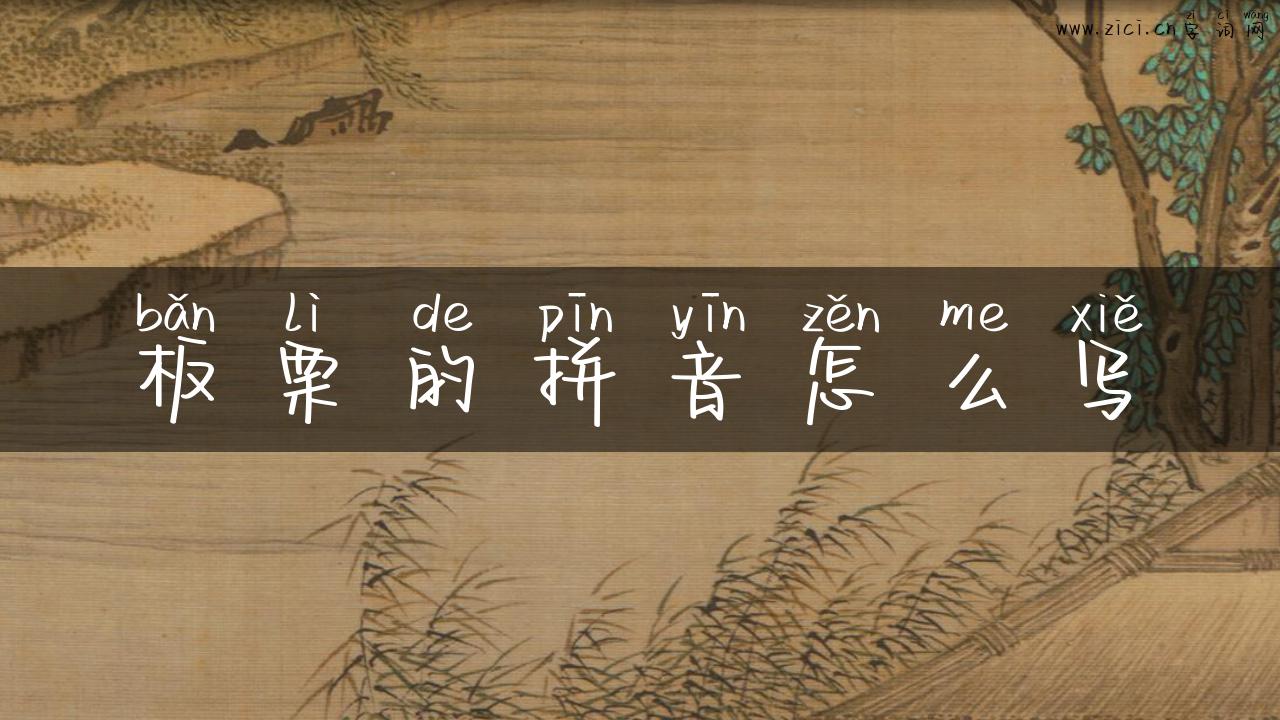 zì cí wǎng
www.zici.cn字词网
bǎn lì de pīn yīn zěn me xiě
板栗的拼音怎么写